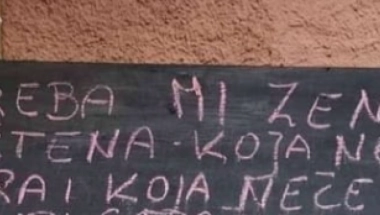 REBA MI ŽEN
ETENA KOJA N
RA I KOJA NEĆE